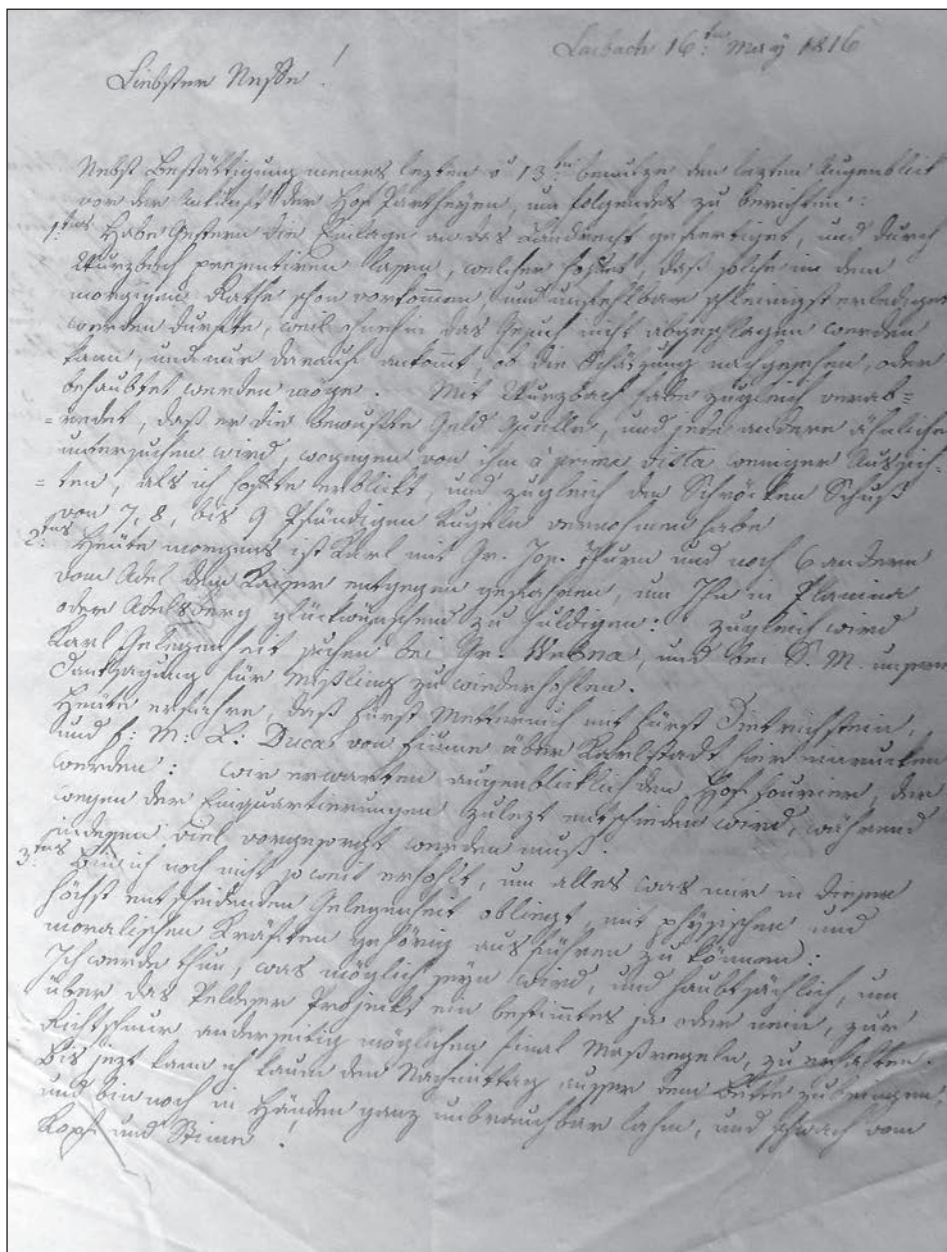 Laibach 16:ten May 1816
Liebster Neffe!
Nebst Bestättigung meines lezten v 13:ten benutze den lezten Augenblick
vor der Ankunft der Hof Partheyen, um folgendes zu berichten:
1:tens Habe Gestern die Einlage an das Landrecht gefertiget, und durch
Wurzbach presentiren lassen, welcher hoffet, daß solche in dem
morgigen Rathe schon vorkommen, und unfehlbar schleinigst erlediget
werden durfte, weil ohnehin das Gesuch nicht abgeschlagen werden
kann, und nur darauf ankommt, ob die Schätzung nachgesehen, oder
behaubtet werden möge. Mit Wurzbach habe zugleich verab=
=redet, daß er die bewußte Geld Quelle, und jede andere ähnliche
untersuchen wird, wogegen von ihm à prima vista weniger Aussich=
=ten, als ich hoffte erblickt, und zugleich den Schröcken Schuß
von 7, 8, bis 9 Pfündigen Kugeln vernohmen habe
2:tens Heute morgens ist Karl mit Gr. Jos. Thurn und noch 6 andern
vom Adel dem Kaiser entgegen gefahren, um Ihn in Planina
oder Adelsberg glückwünschend zu huldigen: zugleich wird
Karl Gelegenheit suchen bei Gr. Wrbna, und bei S. M. unsere
Danksagung für Mißling zu wiederhohlen.
Heute erfahre, daß Fürst Metternich mit Fürst Dietrichstein,
und F: M: L: Duca von Fiume über Karlstadt hier einrucken
werden: wir erwarten augenblicklich den Hof Fourier, der
wegen der Einquartierungen zulezt entscheiden wird, während
indessen viel vorgesorgt werden muß.
3:tens Bin ich noch nicht so weit erhohlt, um alles was mir in dieser
höchst entscheidenden Gelegenheit obliegt, mit physischen und
moralischen Kräften gehörig ausführen zu können:
Ich werde thun, was möglich seyn wird, und haubtsächlich, um
über das Veldeser Projeckt ein bestimmtes ja oder nein, zur
Richtschnur anderseitig möglichen final Maßregeln, zu erhalten.
Bis jezt kann ich kaum den Nachmittag ausser dem Bette zubringen,
und bin noch in Händen ganz unbrauchbar lahm, und schwach vom
Kopf und Stimme.